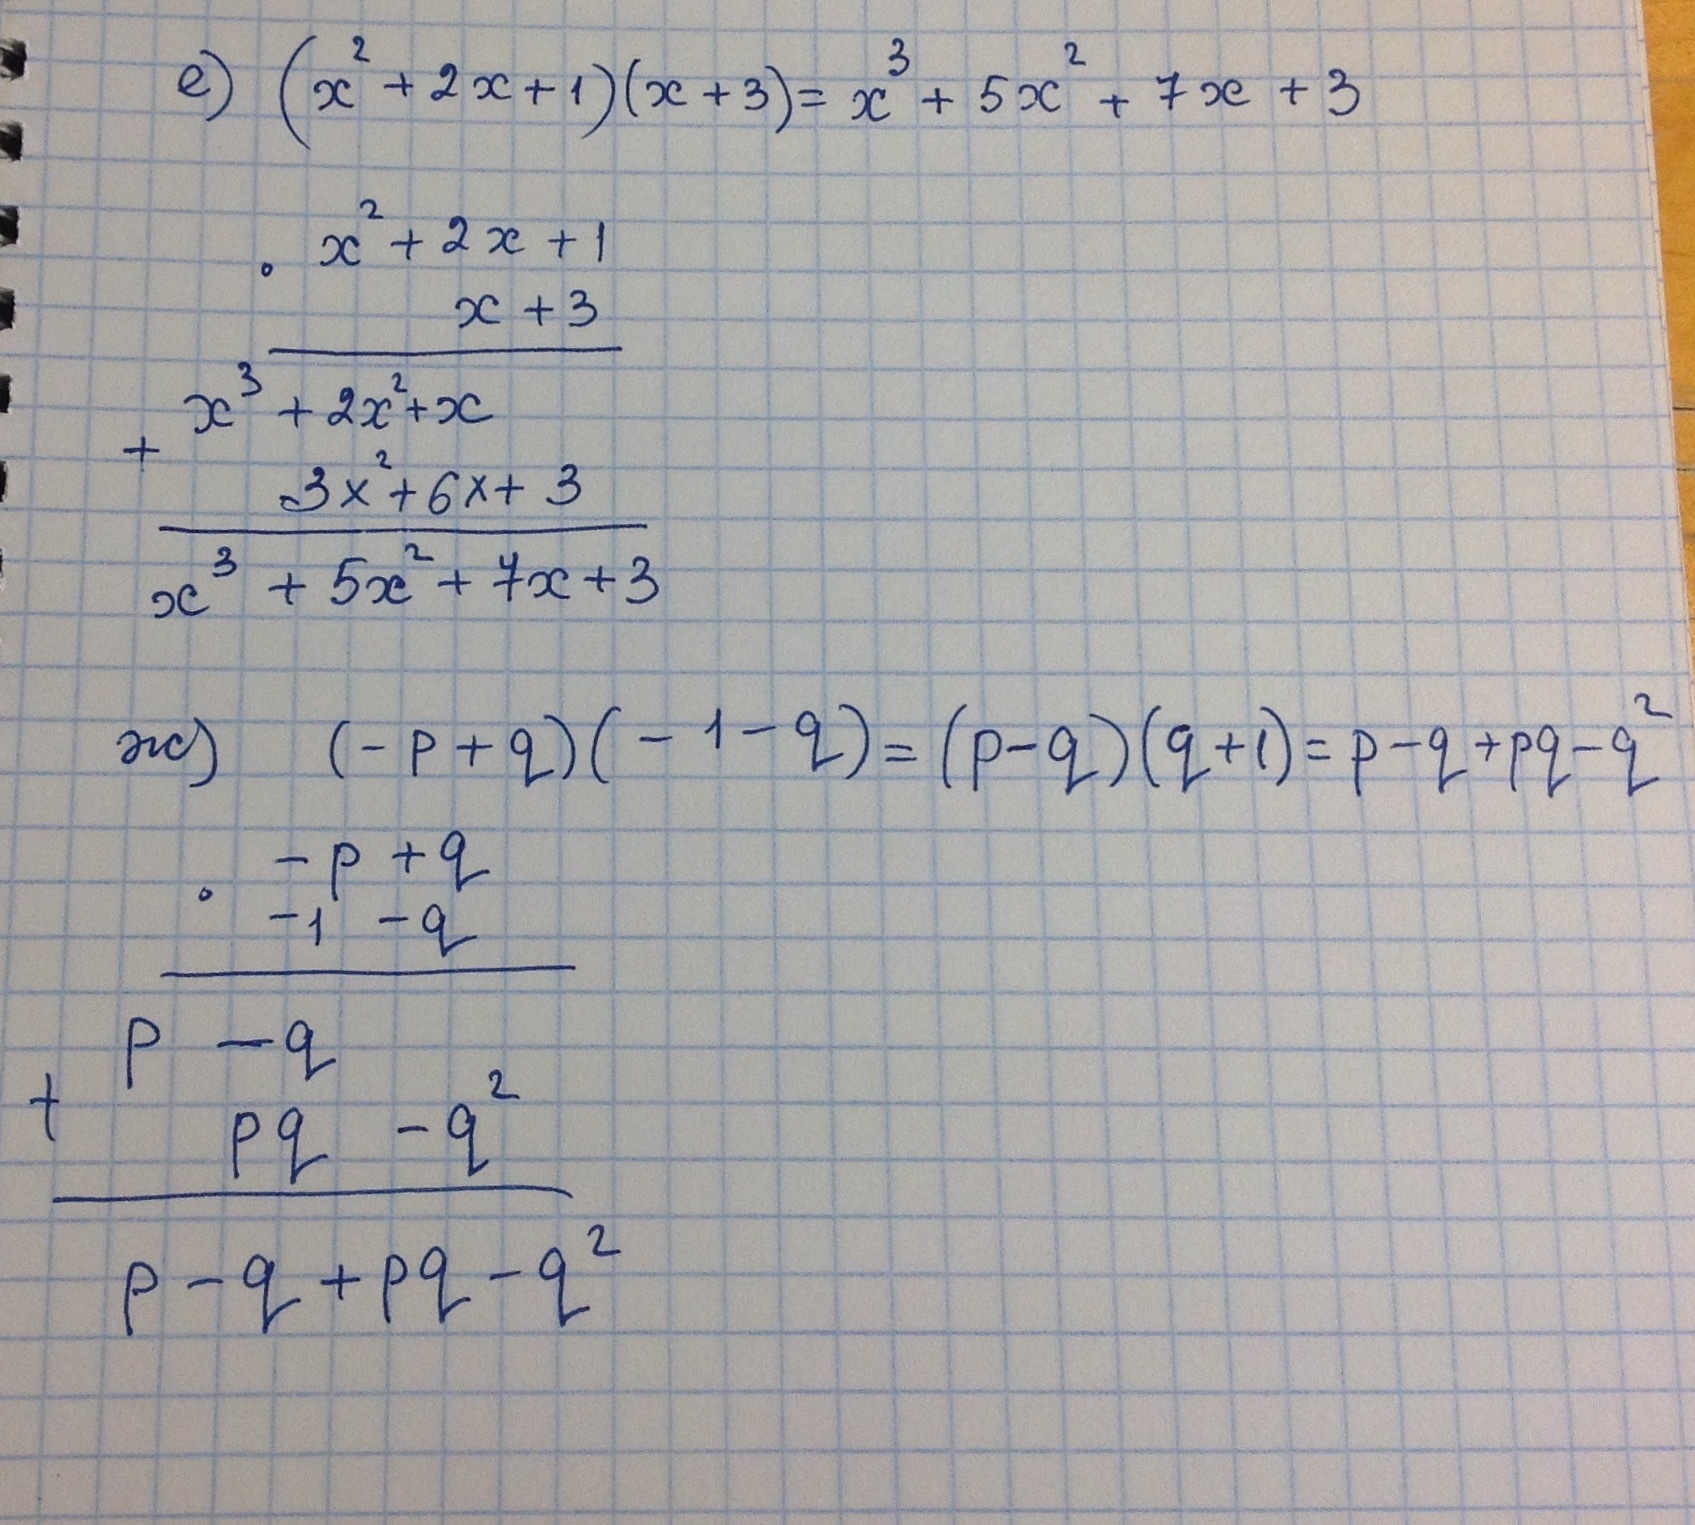 е) (x² + 2x + 1)(x + 3) = x³ + 5x² + 7x + 3
· x² + 2x + 1
x + 3
x³ + 2x² + x
+
3x² + 6x + 3
x³ + 5x² + 7x + 3
ж) (-p + q)(-1 - q) = (p - q)(q + 1) = p - q + pq - q²
· -p + q
-1 - q
p - q
+
pq - q²
p - q + pq - q²